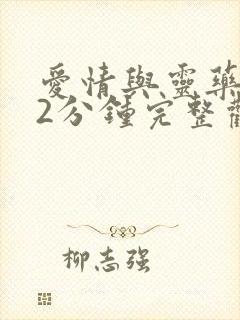 愛情與靈藥
2分鍾完整
柳志强